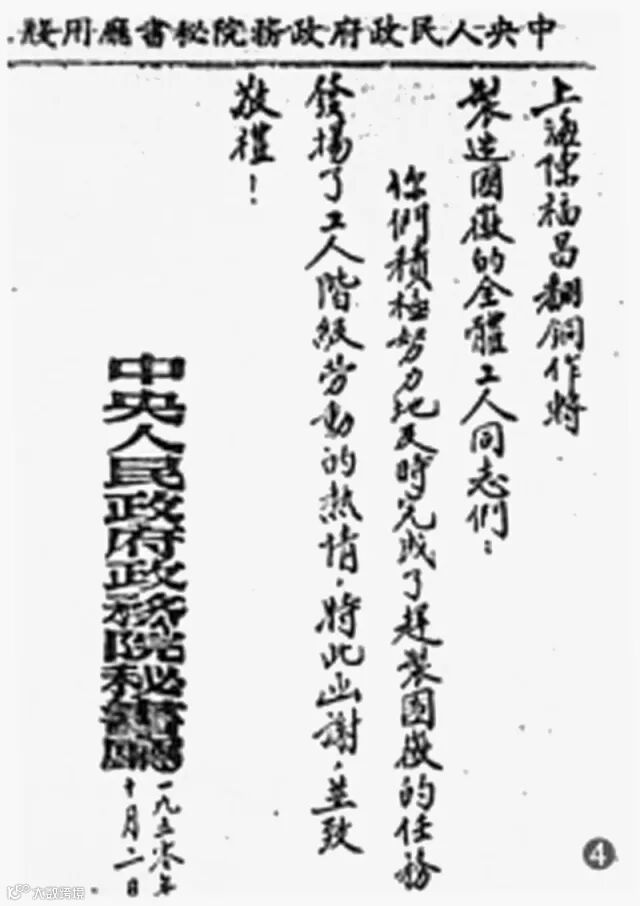 中央人民政府政務院秘書廳用箋
上海陳福昌翻銅作將
製造國徽的全體工人同志們：
你們積極努力地及時完成了趕製國徽的任務
發揚了工人階級勞動的熱情，特此函謝，並致
敬禮！
中央人民政府政務院秘書廳
一九五零年
十月二日
4
大数跨境